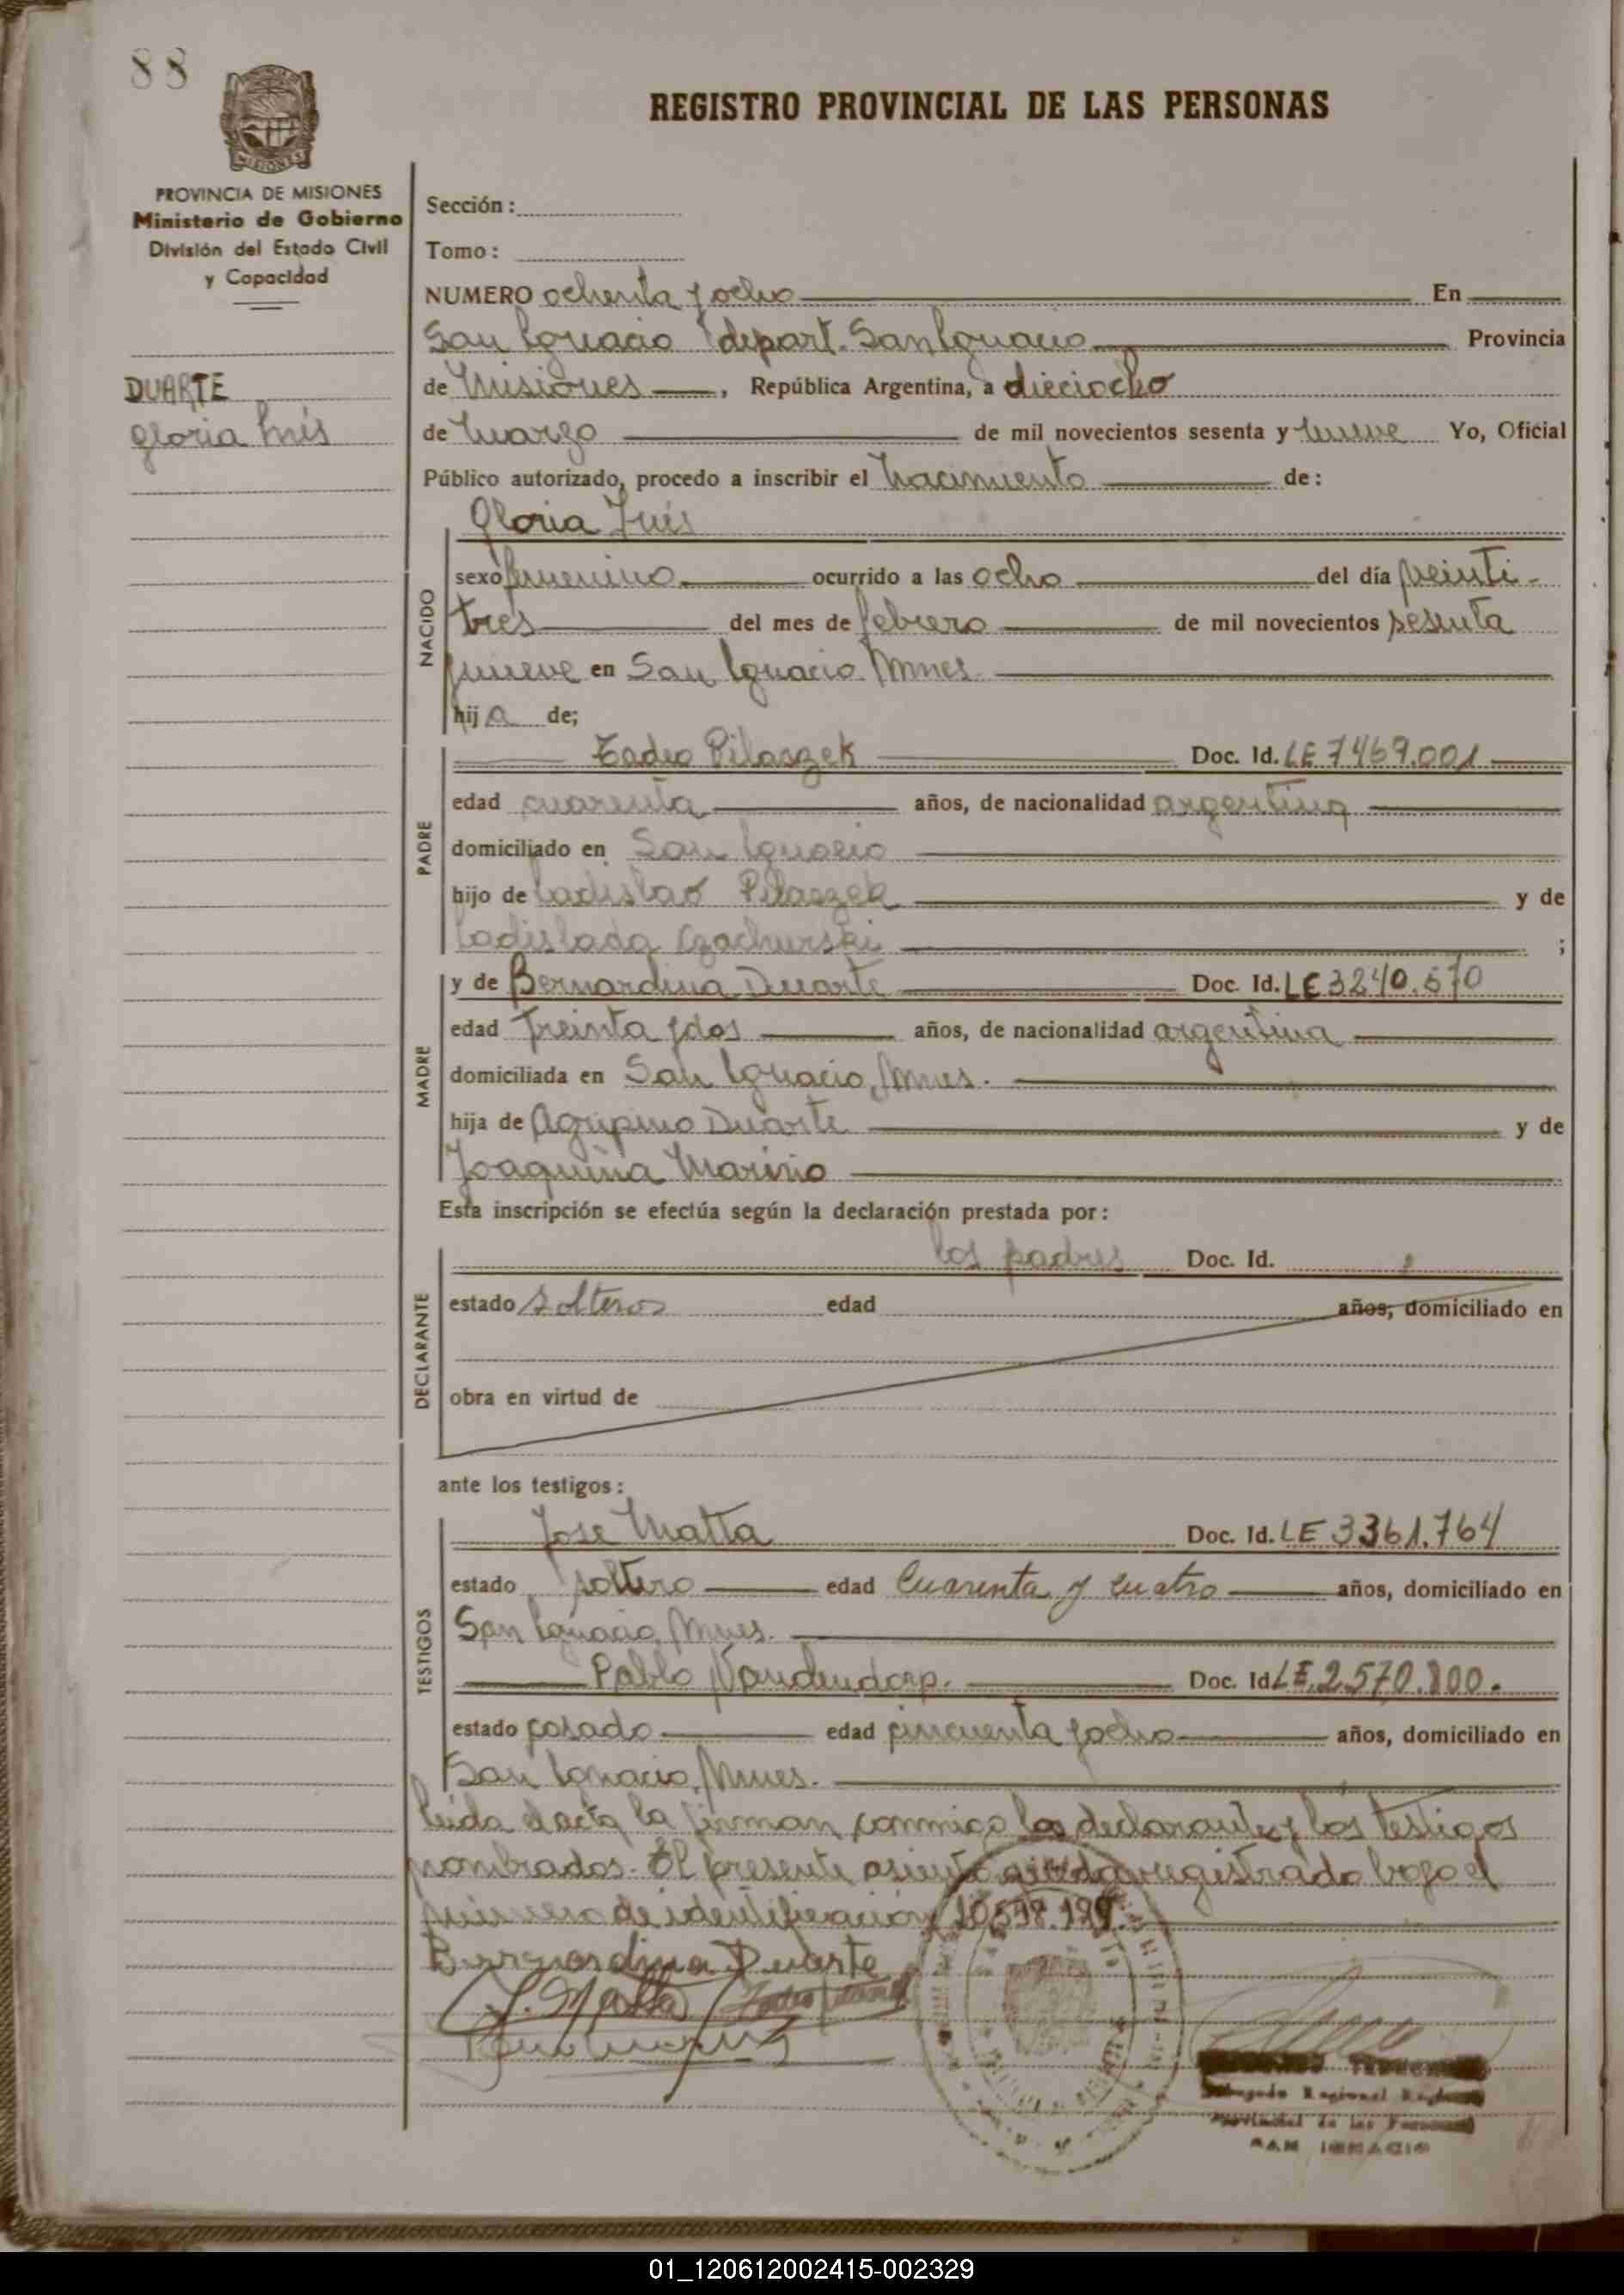 88
MISIONES
REGISTRO PROVINCIAL DE LAS PERSONAS
PROVINCIA DE MISIONES
Ministerio de Gobierno
División del Estado Civil
y Capacidad
DUARTE
Gloria Inés
Sección:
Tomo:
NUMERO ochenta y ocho En
San Ignacio depart. San Ignacio Provincia
de Misiones, República Argentina, a dieciocho
de Marzo de mil novecientos sesenta y nueve Yo, Oficial
Público autorizado, procedo a inscribir el nacimiento de:
Gloria Inés
NACIDO
sexo femenino ocurrido a las ocho del día veinti-
tres del mes de febrero de mil novecientos sesenta
y nueve en San Ignacio Mnes.
hija de;
PADRE
Tadeo Pilaszek Doc. Id. LE 7469.001
edad cuarenta años, de nacionalidad argentina
domiciliado en San Ignacio
hijo de Ladislao Pilaszek y de
Ladislada Czachurski ;
MADRE
y de Bernardina Duarte Doc. Id. LE 3240.570
edad treinta y dos años, de nacionalidad argentina
domiciliada en San Ignacio, Mnes.
hija de Agripino Duarte y de
Joaquina Marinio
Esta inscripción se efectúa según la declaración prestada por:
DECLARANTE
los padres Doc. Id.
estado solteros edad años, domiciliado en
obra en virtud de
ante los testigos:
TESTIGOS
Jose Matta Doc. Id. LE 3361.764
estado soltero edad Cuarenta y cuatro años, domiciliado en
San Ignacio, Mnes.
Pablo Vandendorp. Doc. Id LE.2.570.800.
estado casado edad cincuenta y ocho años, domiciliado en
San Ignacio, Mnes.
leída el acta la firman conmigo los declarantes y los testigos
nombrados. El presente asiento queda registrado bajo el
número de identificación 20.598.
Bernardina Duarte
J. Matta Tadeo
Delegado Regional
Provincial de las Personas
SAN IGNACIO
01_120612002415-002329